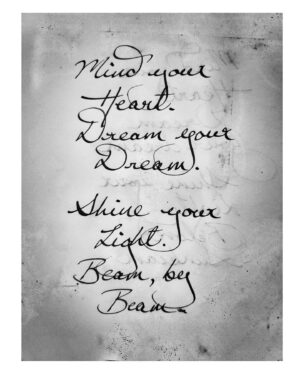 Mind your
Heart.
Dream your
Dream.
Shine your
Light.
Beam, by
Beam.